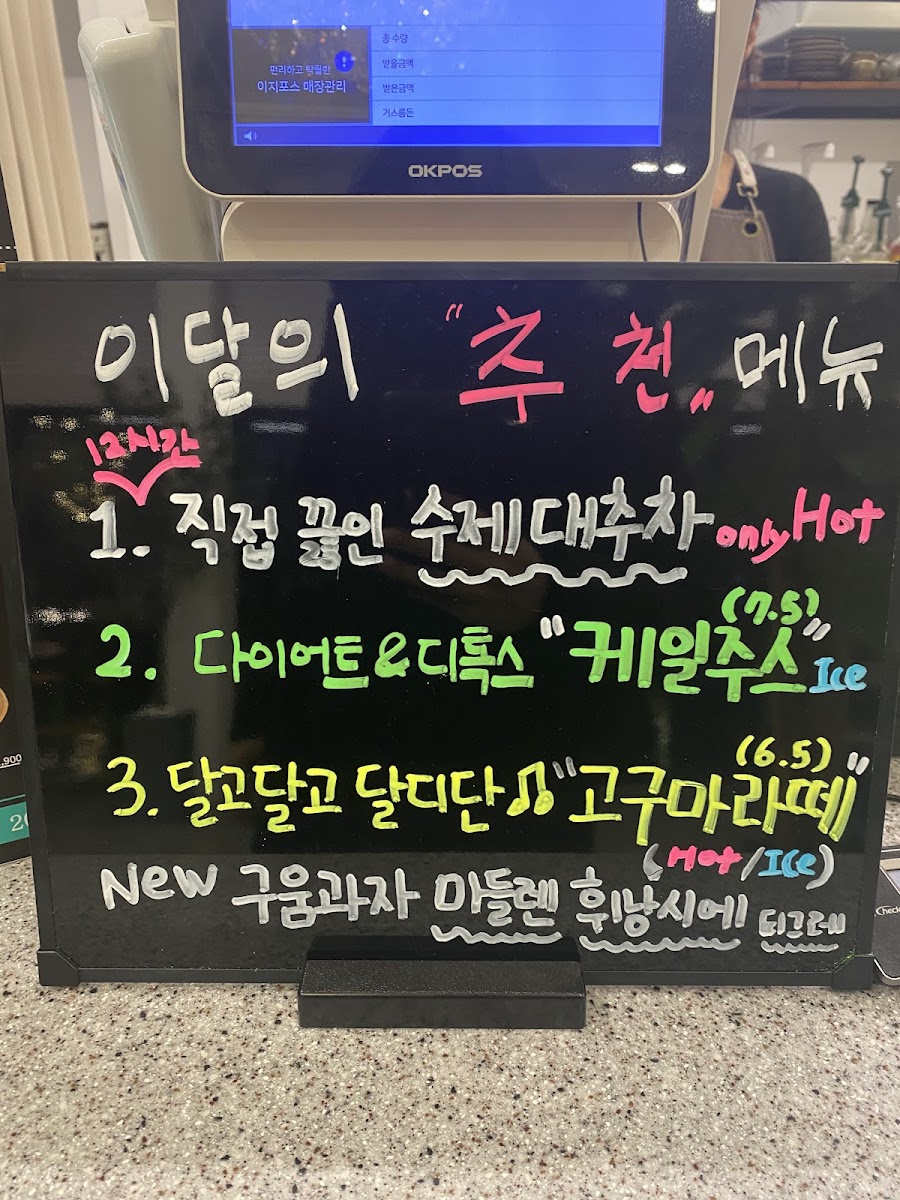 총 수량
편리하고 탁월한
받을금액
이지포스 매장관리
받은금액
거스름돈
OKPOS
이달의 "추천" 메뉴
12시간
1. 직접 끓인 수제대추차 only Hot
(7.5)
2. 다이어트&디톡스 "케일주스" Ice
(6.5)
3. 달고달고 달디단♫ "고구마라떼"
(Hot/Ice)
New 구움과자 마들렌 휘낭시에 띠그레
,900